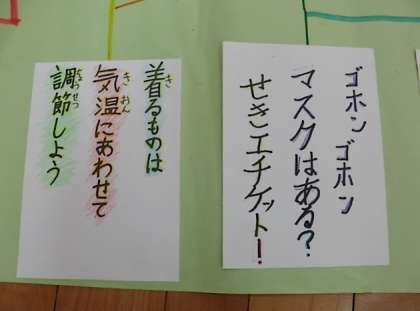 ゴホン ゴホン
マスクはある?
せきエチケット!
着るものは
気温にあわせて
調節しよう